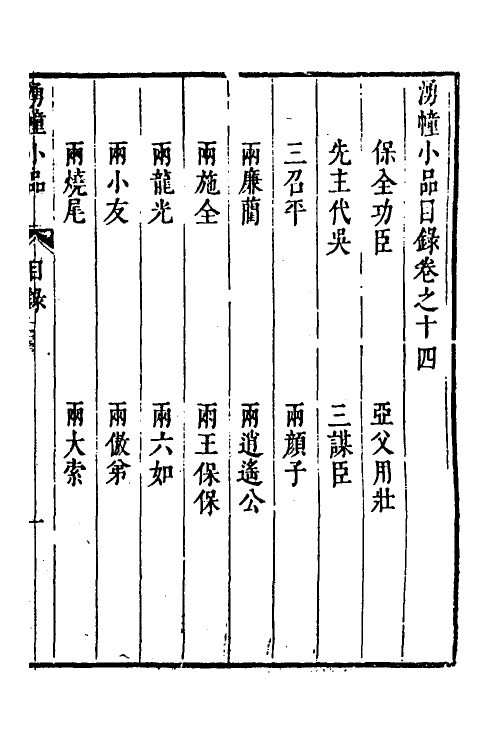 湧幢小品目錄卷之十四
保全功臣
亞父用壯
先主代吳
三謀臣
三召平
兩顏子
兩廉藺
兩逍遙公
兩施全
兩王保保
兩龍光
兩六如
兩小友
兩傲弟
兩燒尾
兩大索
湧幢小品
目錄
一